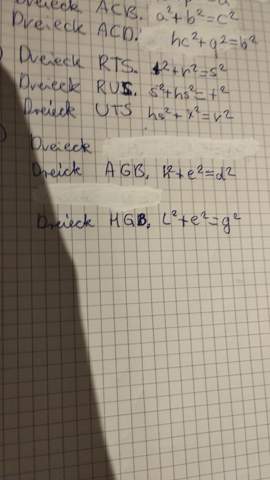 Dreieck ACB. a²+b²=c²
Dreieck ACD. hc²+q²=b²
Dreieck RTS. t²+r²=s²
Dreieck RUS. s²+hs²=t²
Dreieck UTS hs²+x²=r²
Dreieck
Dreick AGB. k²+e²=d²
Dreieck HGB. L²+e²=g²